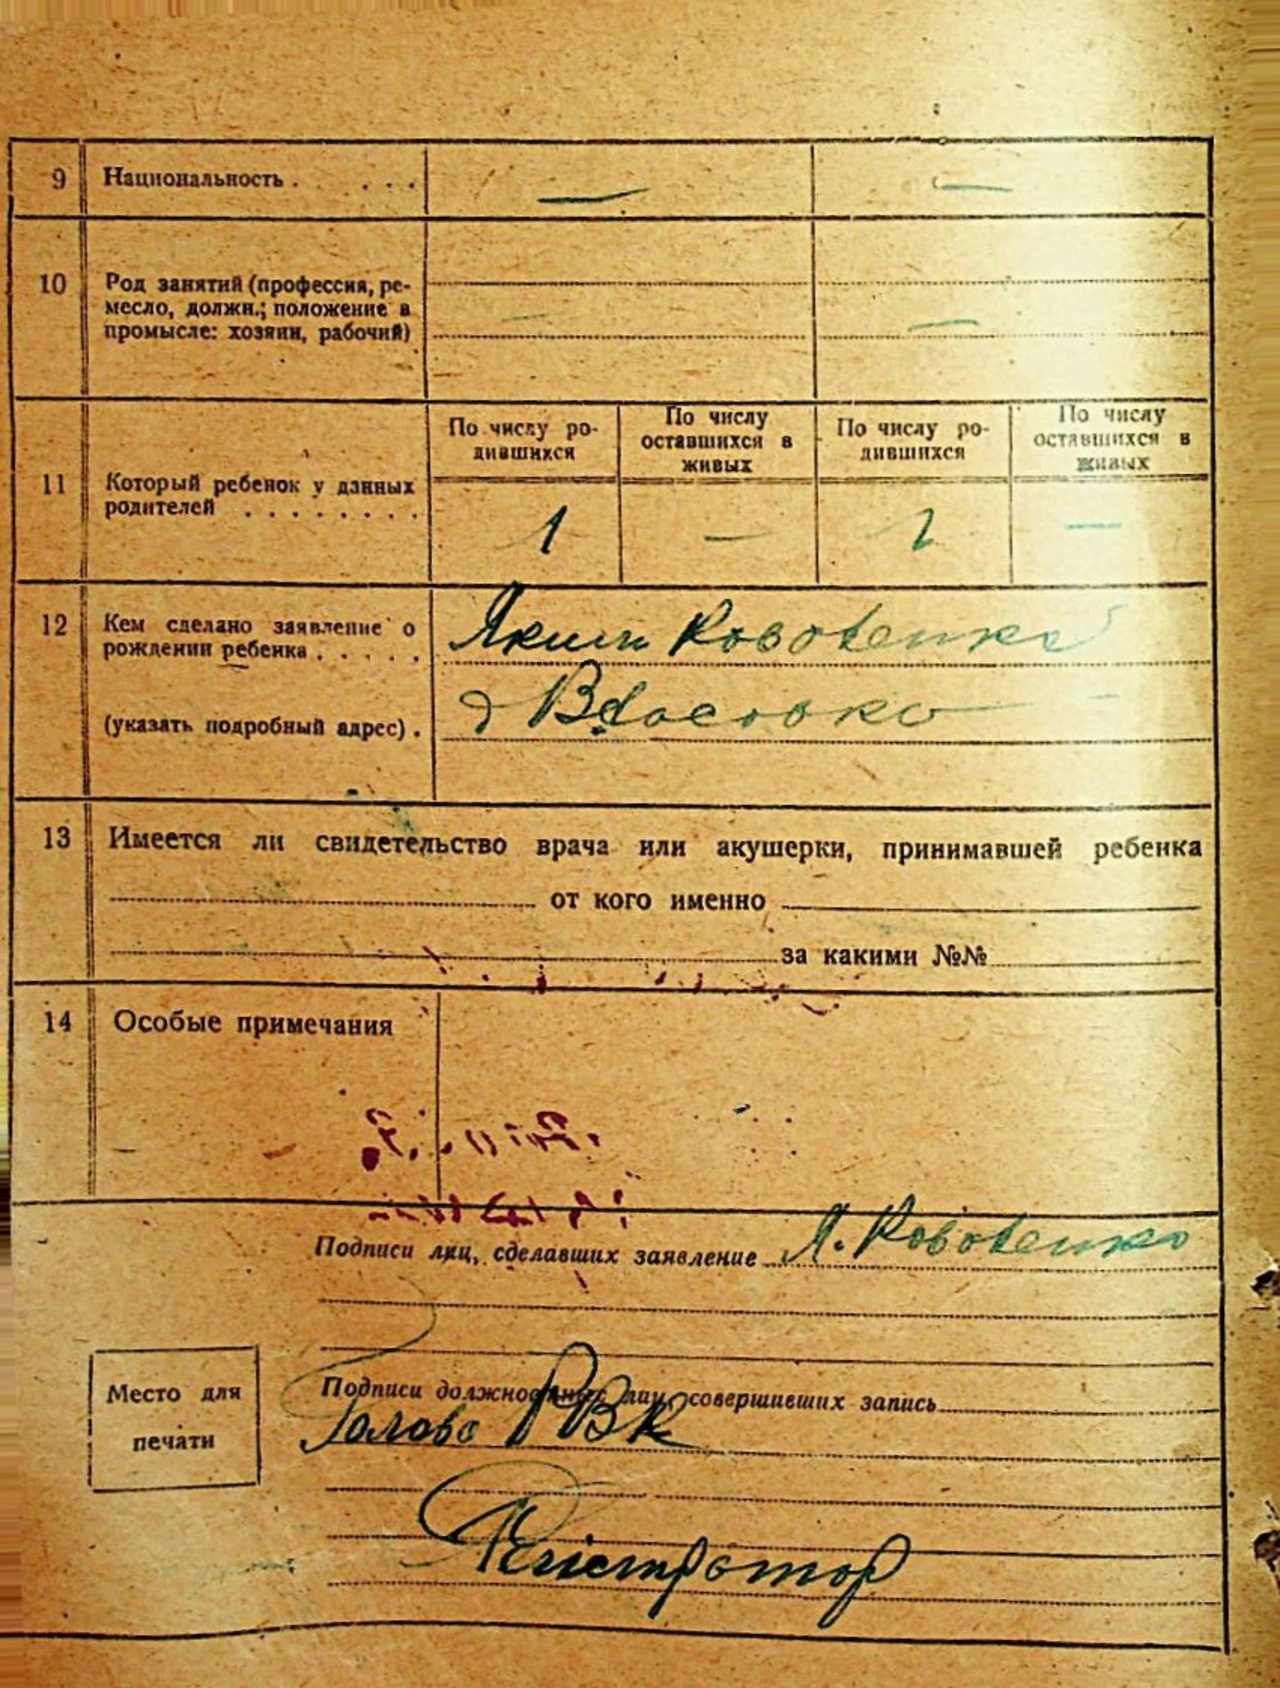 9 Национальность . . . . . — —
10 Род занятий (профессия, ре-
месло, должн.; положение в
промысле: хозяин, рабочий) — —
11 Который ребенок у данных
родителей . . . . . . . .
По числу ро-
дившихся
По числу
оставшихся в
живых
По числу ро-
дившихся
По числу
оставшихся в
живых
1 — 1 —
12 Кем сделано заявление о
рождении ребенка . . . . .
Яким
(указать подробный адрес) .
13 Имеется ли свидетельство врача или акушерки, принимавшей ребенка
от кого именно
за какими №№
14 Особые примечания
Подписи лиц, сделавших заявление Я.
Место для
печати
Подписи должностных лиц, совершивших запись
Голова РВК
Регістратор